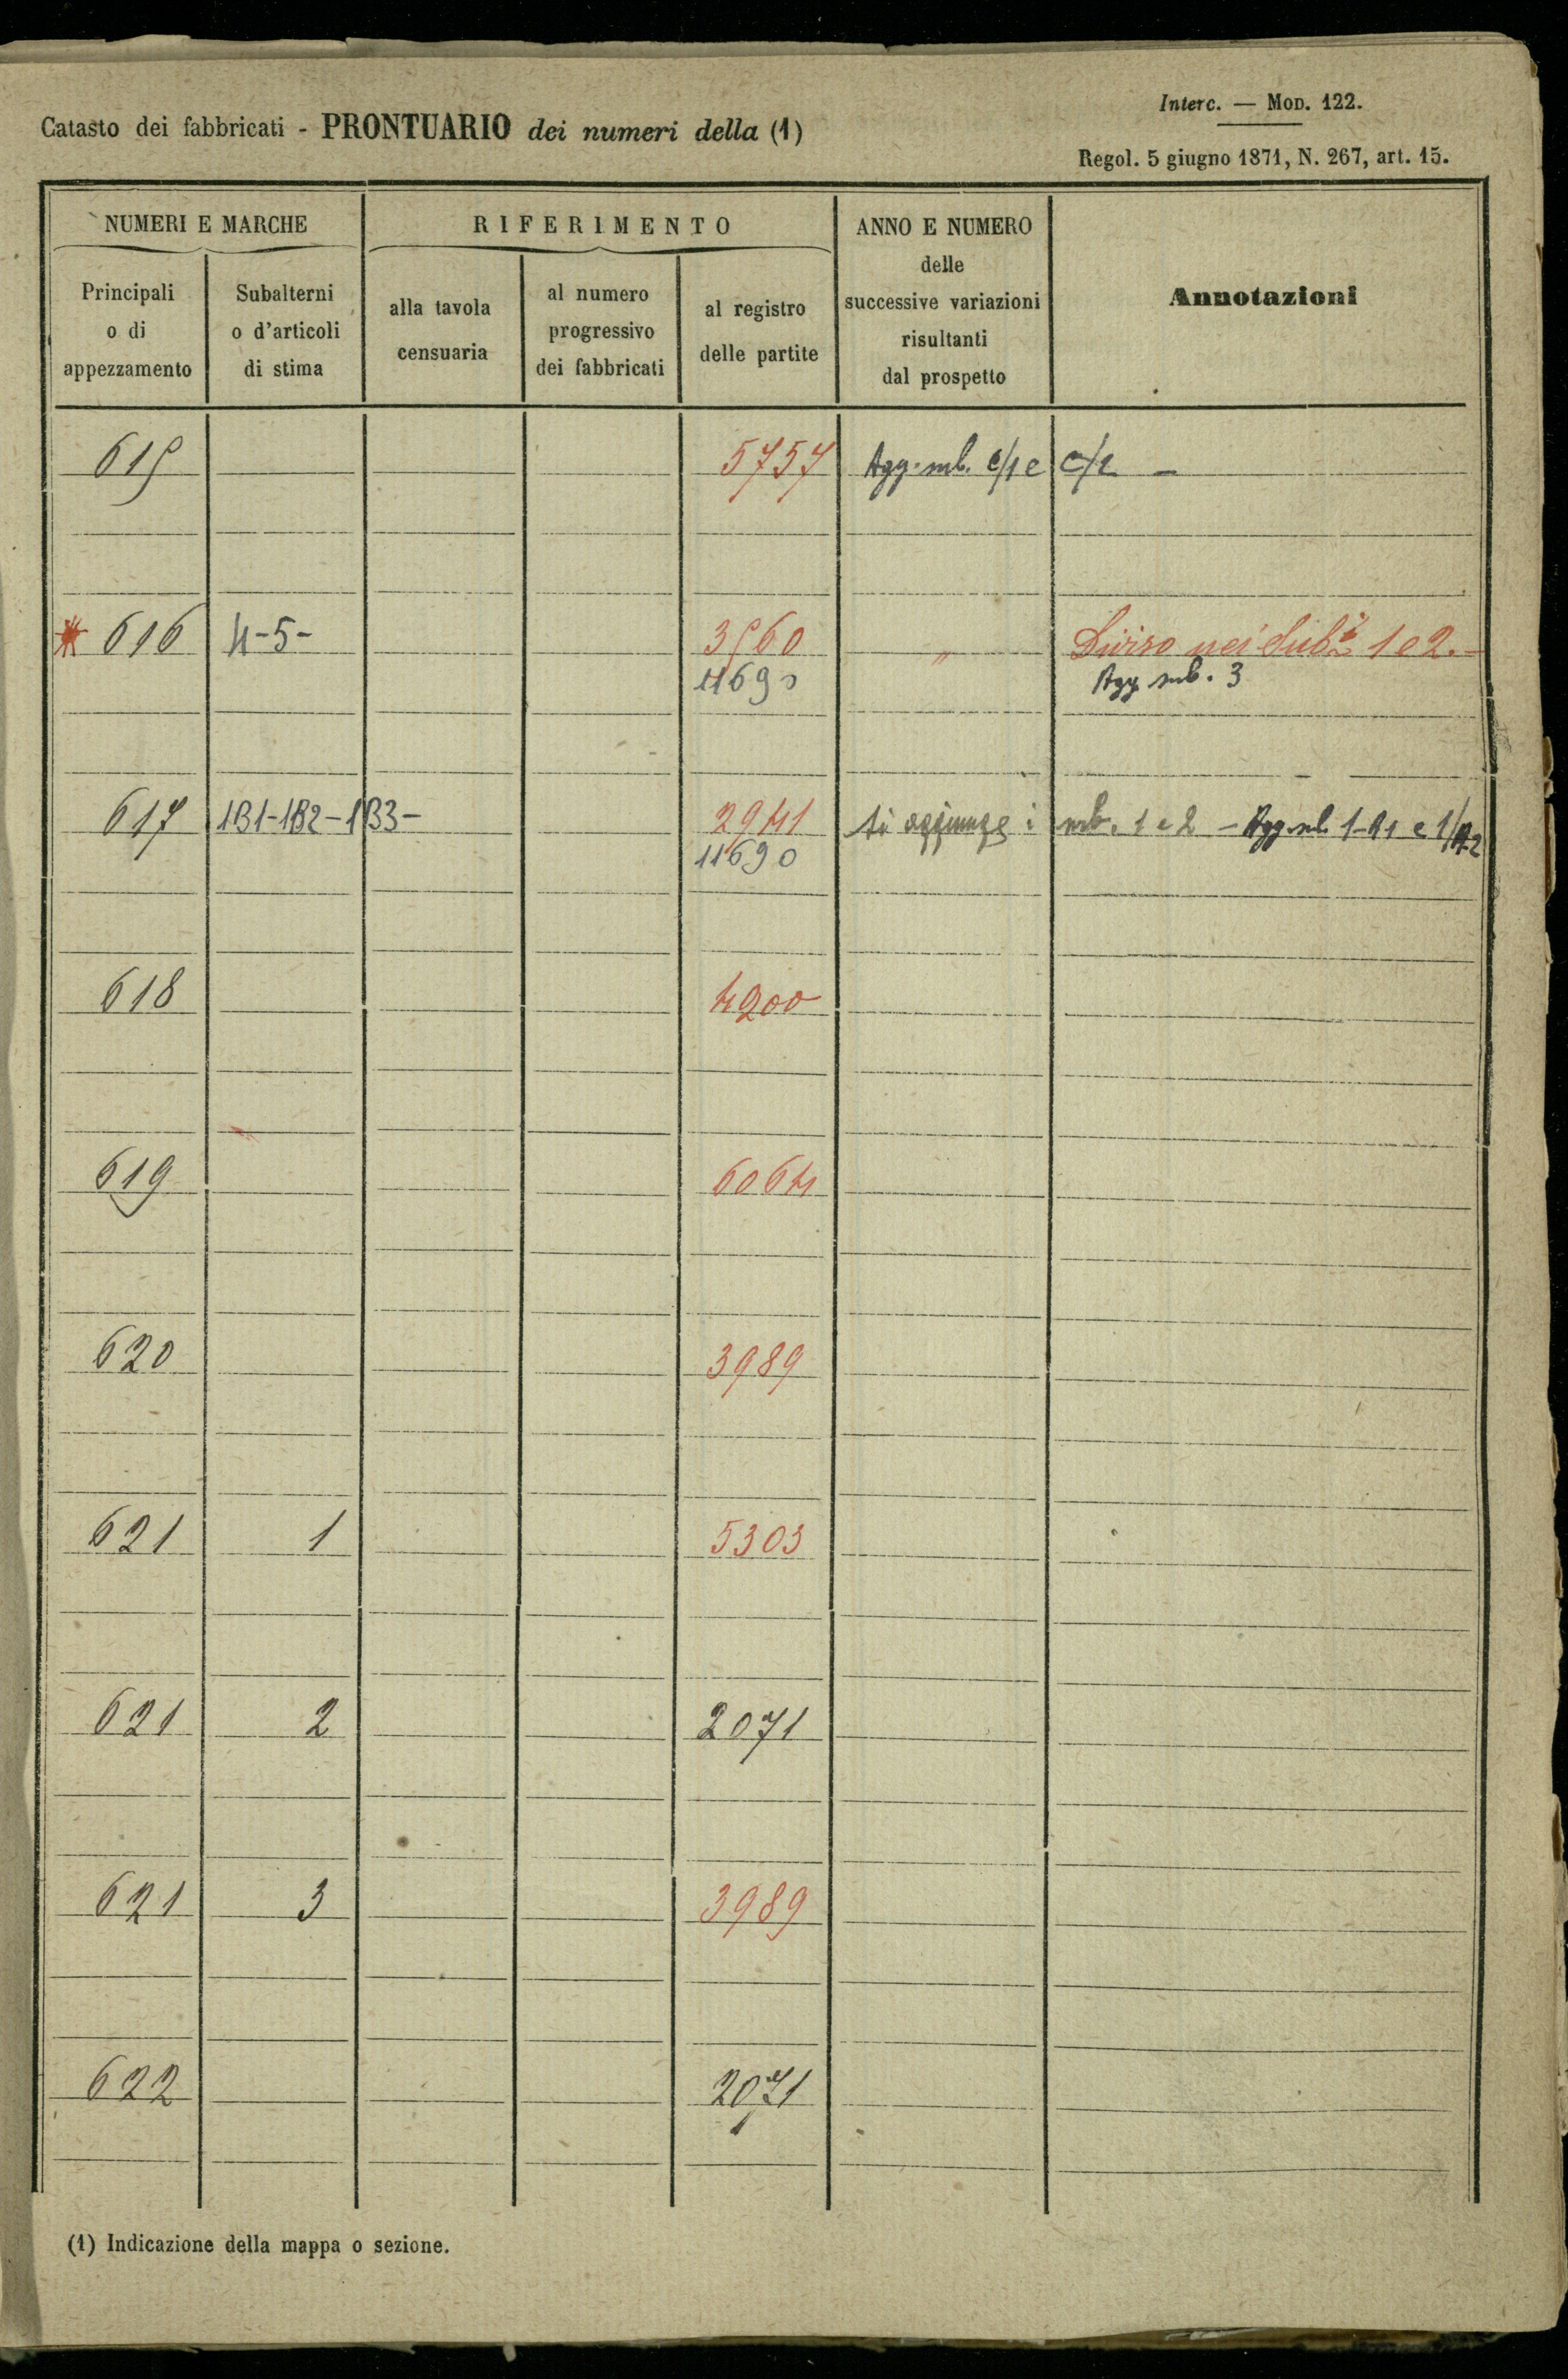 Interc. — Mod. 122.
Catasto dei fabbricati - PRONTUARIO dei numeri della (1)
Regol. 5 giugno 1871, N. 267, art. 15.
NUMERI E MARCHE RIFERIMENTO ANNO E NUMERO delle successive variazioni risultanti dal prospetto Annotazioni
Principali o di appezzamento Subalterni o d'articoli di stima alla tavola censuaria al numero progressivo dei fabbricati al registro delle partite
615 5757 Agg. sub. c/1 e c/2 —
616 4-5- 3560 " Diviso nei Sub.i 1 e 2.—
11690 Agg sub. 3
617 1B1-1B2-1B3- 2941 Si aggiunge i sub. 1 e 2 — Agg. sub. 1-A1 e 1/A2
11690
618 4900
619 6064
620 3989
621 1 5303
621 2 2071
621 3 3989
622 2071
(1) Indicazione della mappa o sezione.